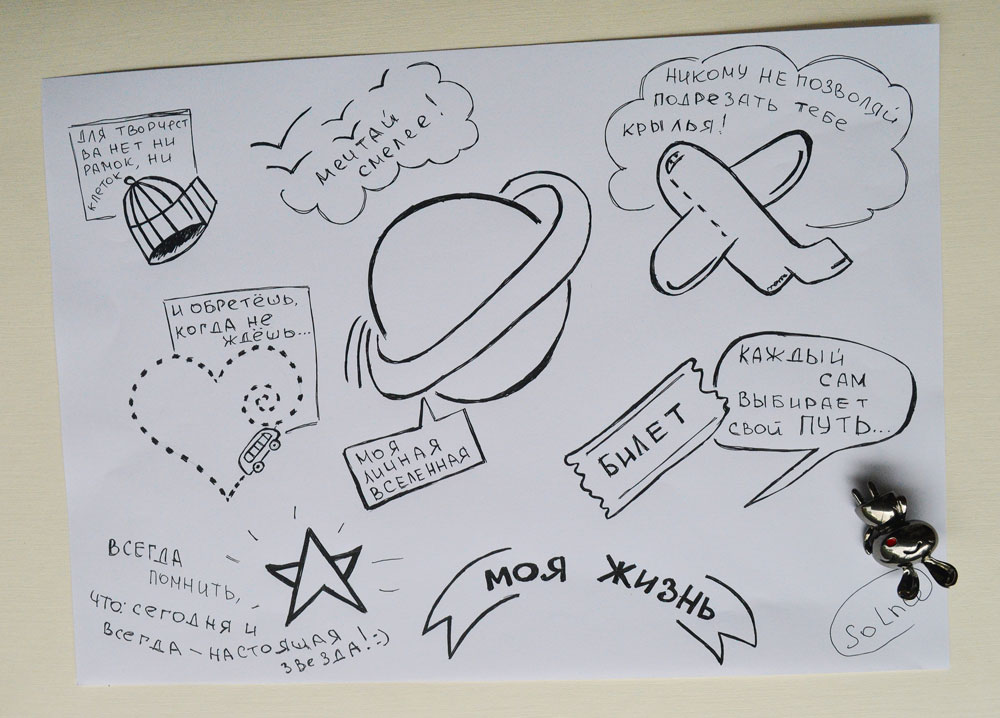 ДЛЯ ТВОРЧЕСТ
ВА НЕТ НИ
РАМОК, НИ
КЛЕТОК
МЕЧТАЙ
СМЕЛЕЕ!
НИКОМУ НЕ ПОЗВОЛЯЙ
ПОДРЕЗАТЬ ТЕБЕ
КРЫЛЬЯ!
И ОБРЕТЁШЬ,
КОГДА НЕ
ЖДЁШЬ...
МОЯ
ЛИЧНАЯ
ВСЕЛЕННАЯ
БИЛЕТ
КАЖДЫЙ
САМ
ВЫБИРАЕТ
СВОЙ ПУТЬ...
ВСЕГДА
ПОМНИТЬ,
ЧТО: СЕГОДНЯ И
ВСЕГДА – НАСТОЯЩАЯ
ЗВЕЗДА! :)
МОЯ ЖИЗНЬ